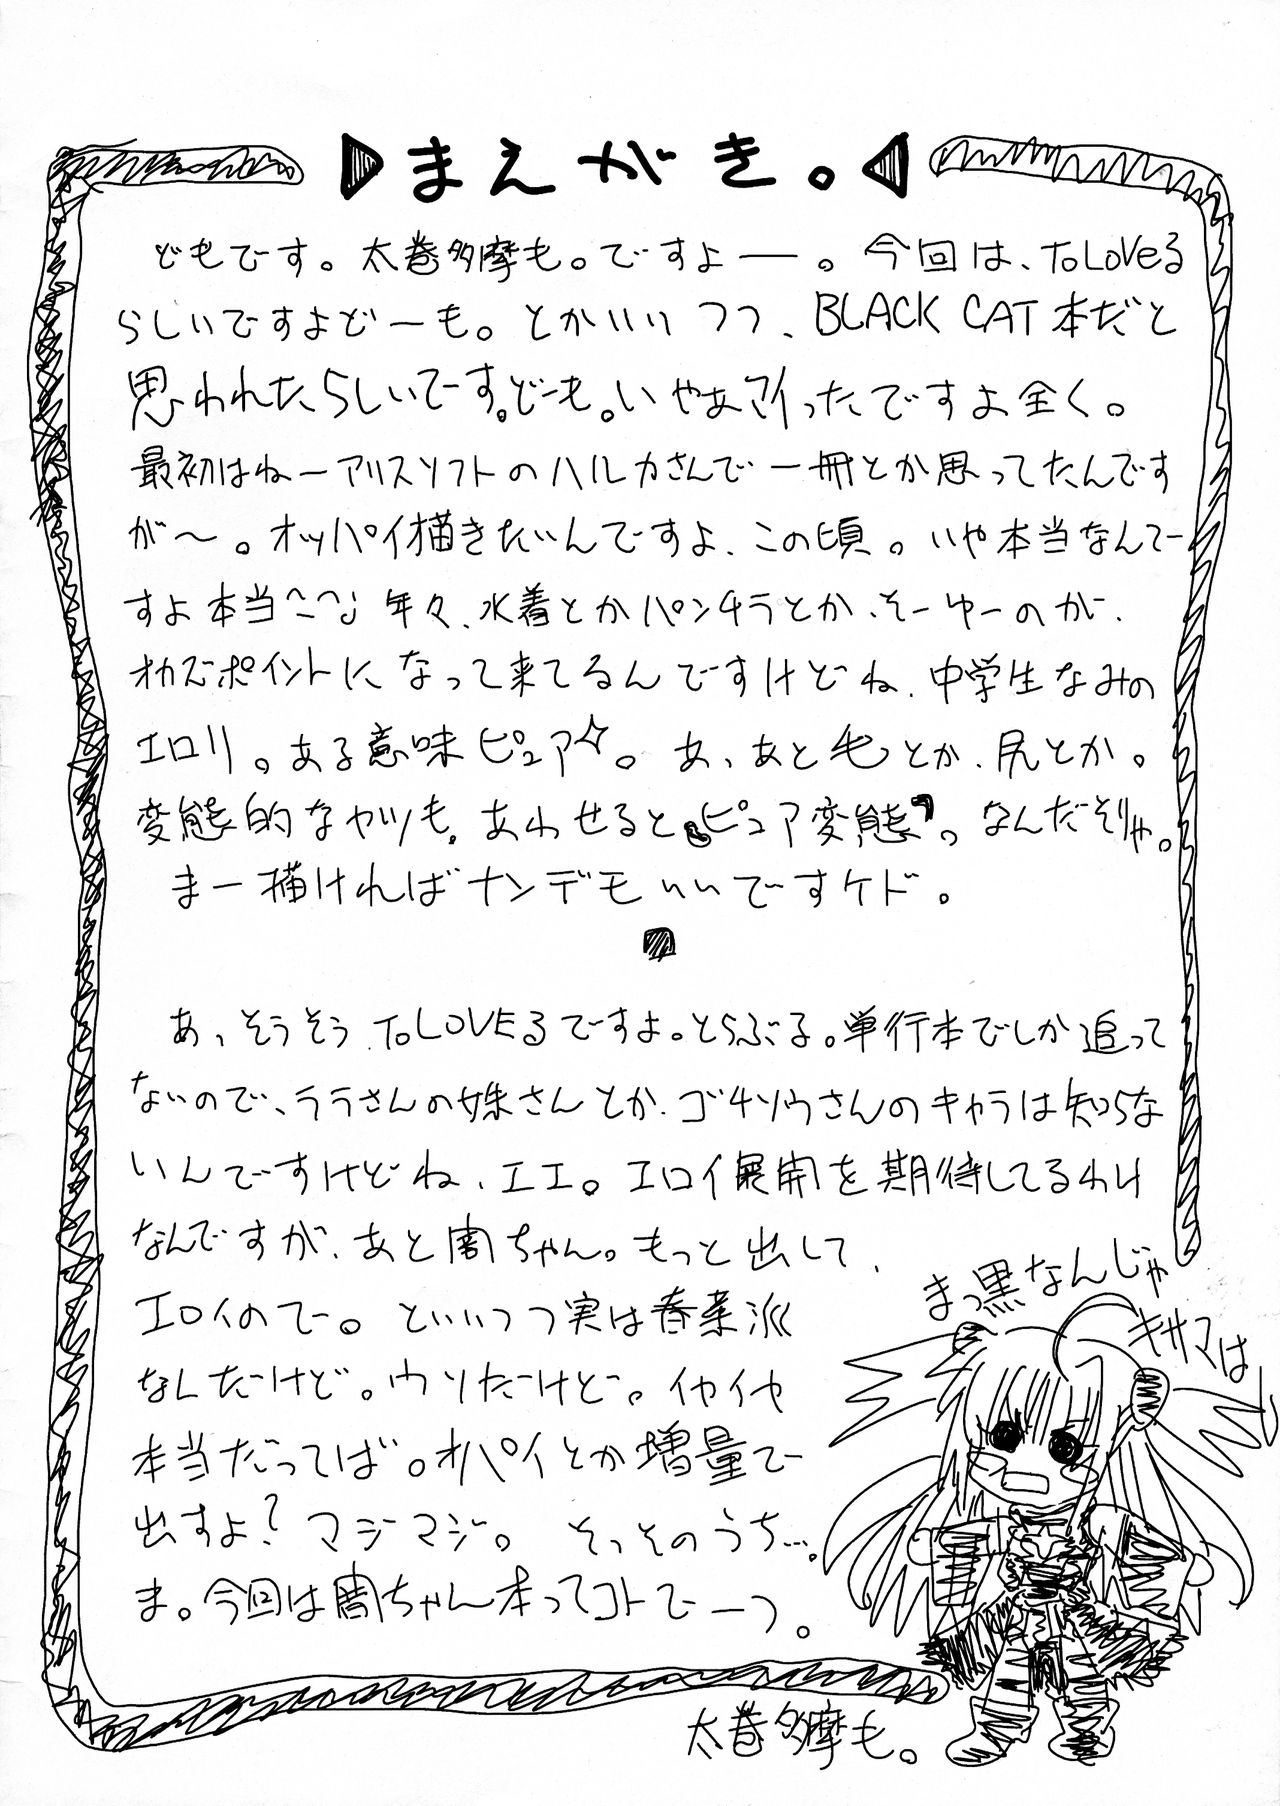 まえがき。
どもです。太巻多摩も。ですよー。今回は、ToLoveる
らしいですよどーも。とかいいつつ、BLACK CAT本だと
思われたらしいでーす。どーも。いやあマイったですよ全く。
最初はねーアリスソフトのハルカさんで一冊とか思ってたんです
が〜。オッパイ描きたいんですよ、この頃。いや本当なんでー
すよ本当^^; 年々、水着とかパンチラとか、そーゆーのが、
オカズポイントになって来てるんですけどね、中学生なみの
エロリ。ある意味ピュア☆。あ、あと毛とか、尻とか。
変態的なヤツも。あわせると「ピュア変態」。なんだそりゃ。
まー描ければナンデモいいですケド。
あ、そうそう、ToLOVEるですよ。とらぶる。単行本でしか追って
ないので、ララさんの妹さんとか、ゴチソウさんのキャラは知らな
いんですけどね、エエ。エロイ展開を期待してるわけ
なんですが、あと闇ちゃん。もっと出して、
エロイのでー。といいつつ実は春菜派
なんだけど。ウソだけど。イヤイヤ
本当だってば。オパイとか増量でー
出すよ?マジマジ。そっそのうち…。
ま。今回は闇ちゃん本ってコトでーっ。
まっ黒なんじゃ
キサマはー
太巻多摩も。